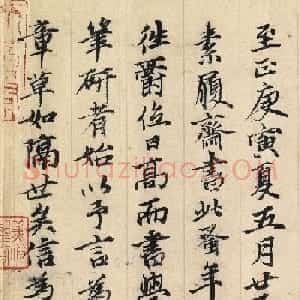 至正庚寅夏五月廿
素履齋書此蚤年
往爵位日高而書學
筆研者始以予言為
章草如隔世矣信為
shufazidiao.com